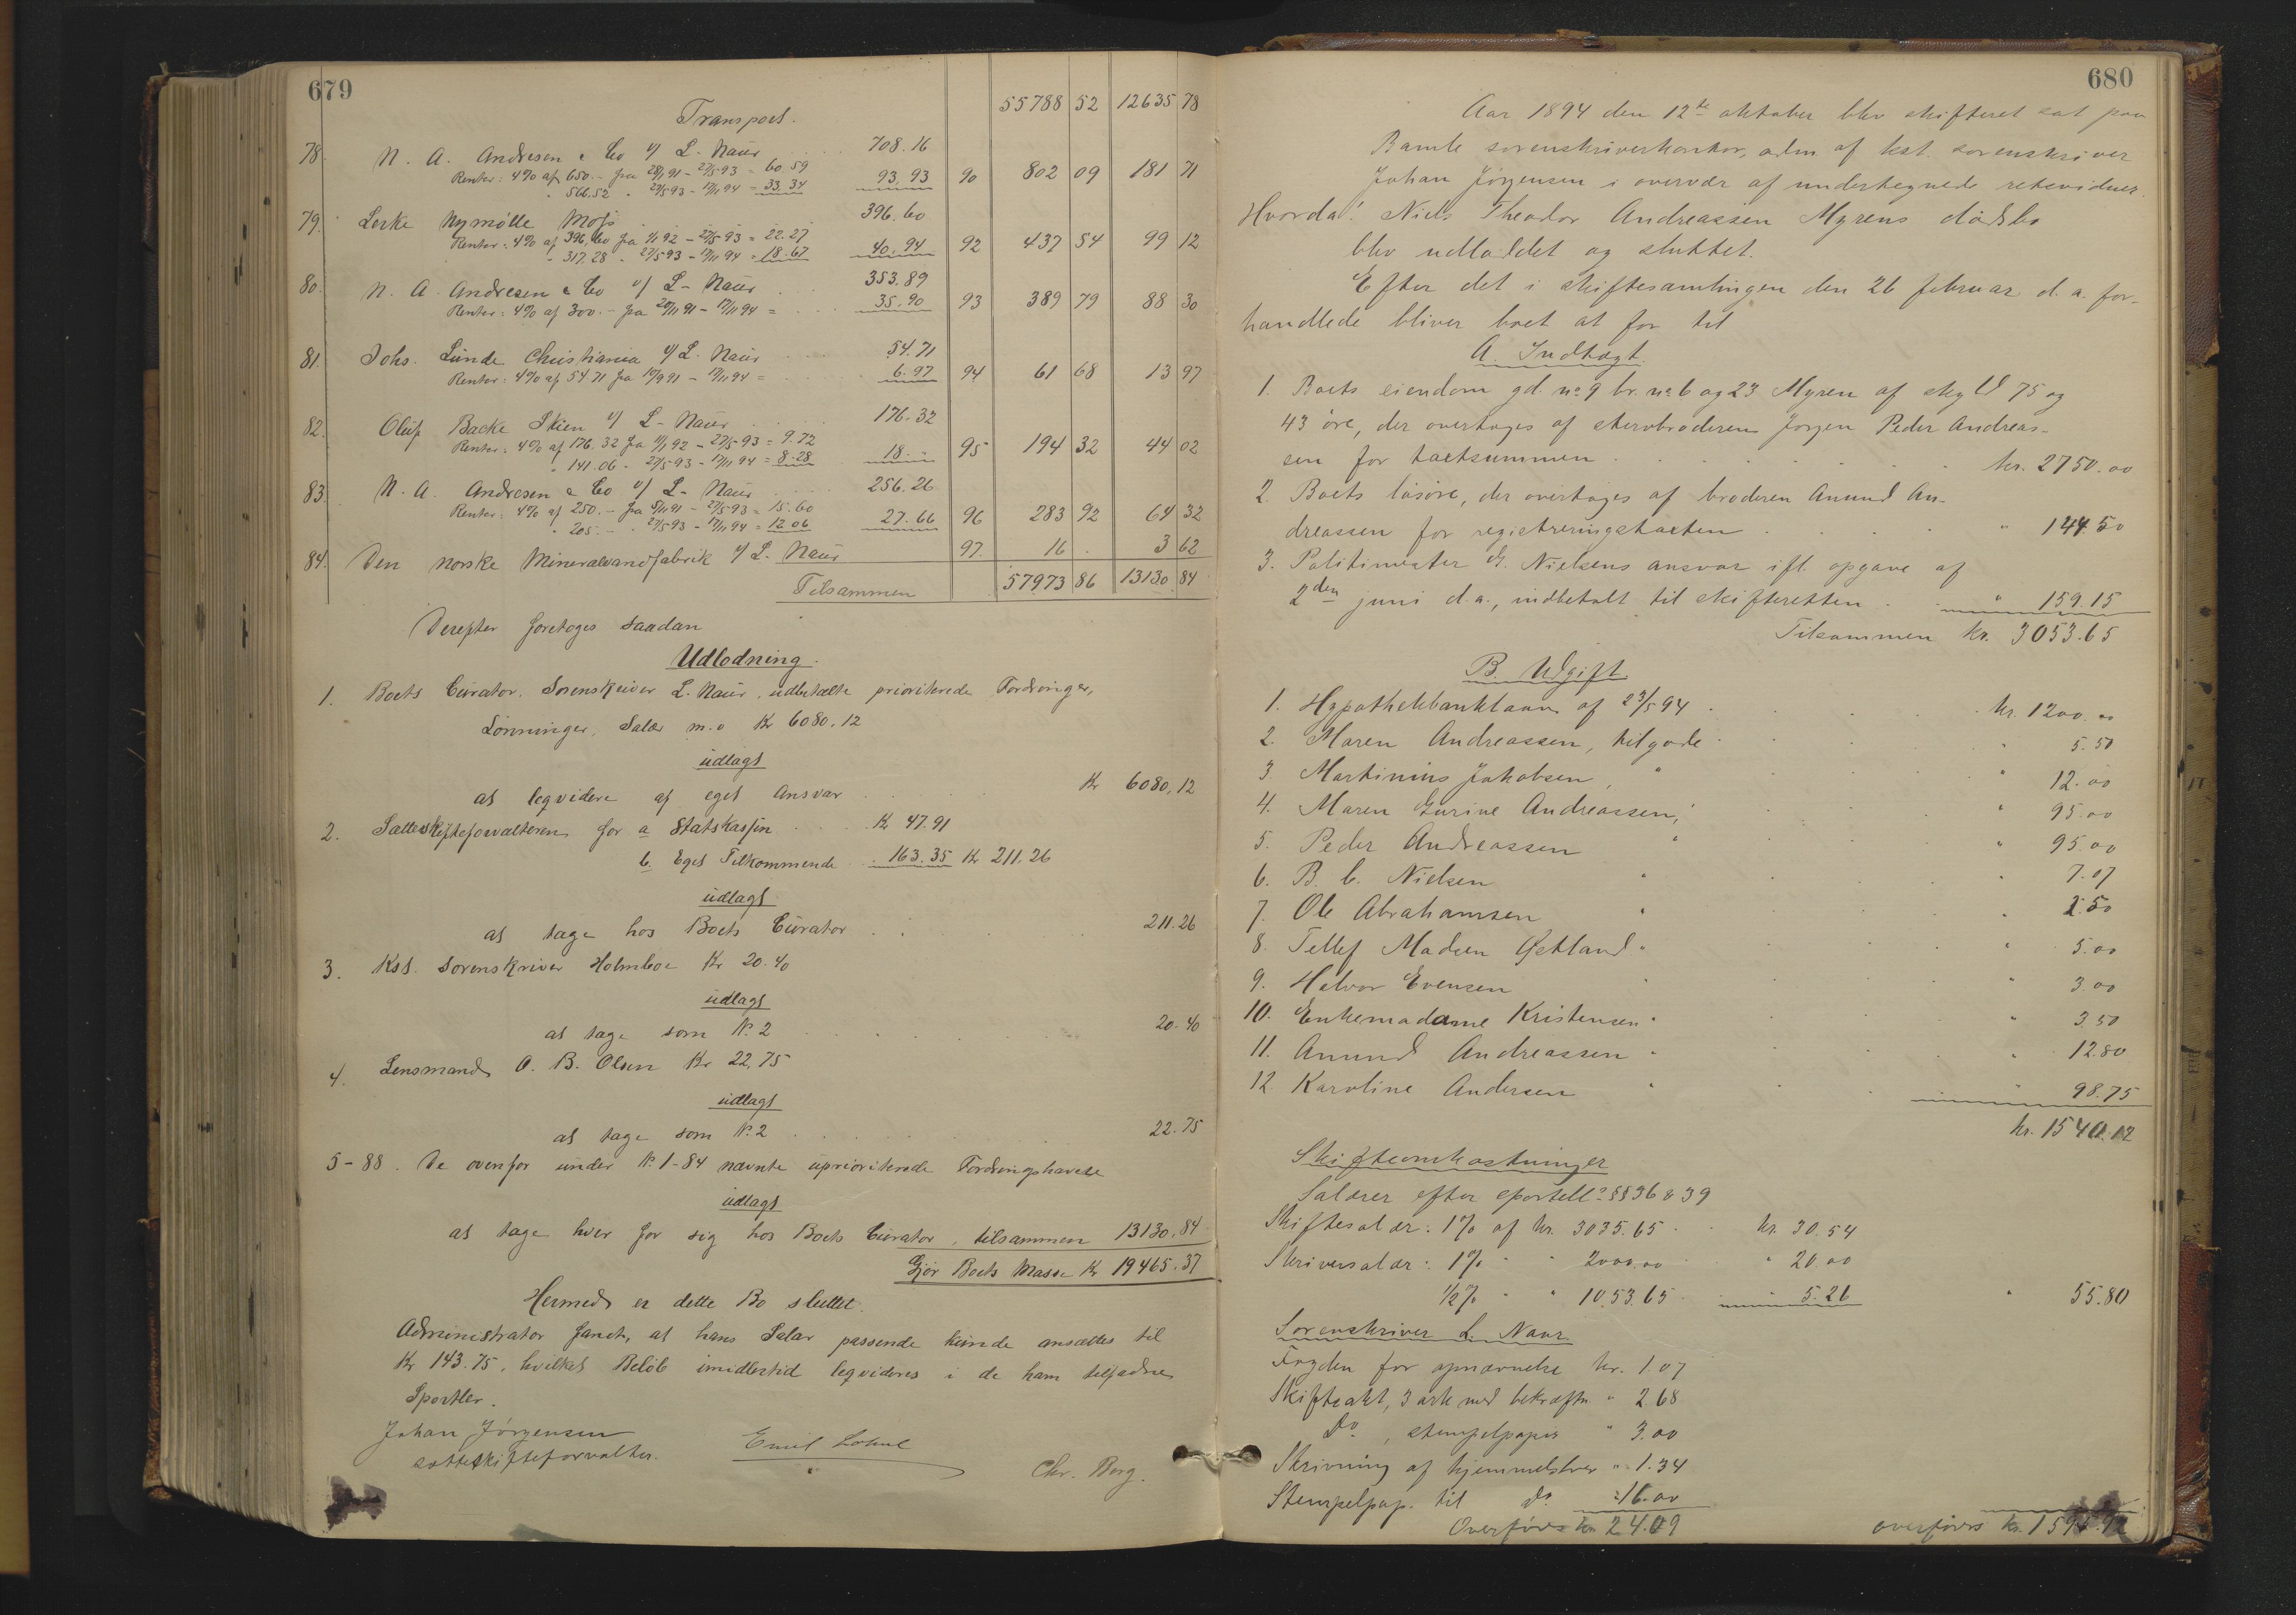 679
Transport.
55788 52 12635 78
78. N. A. Andresen & Co v/ L. Naur 708.16
Renter: 4% af 650.- fra 28/1 91 - 27/5 93 = 60.59
" 566.52 " 27/5 93 - 17/11 94 = 33.34 93.93 90 802 09 181 71
79. Leske Nymølle Mofs 396.60
Renter: 4% af 396.60 fra 1/1 92 - 27/5 93 = 22.27
" 317.28 " 27/5 93 - 17/11 94 = 18.67 40.94 92 437 54 99 12
80. N. A. Andresen & Co v/ L. Naur 353.89
Renter: 4% af 300.- fra 20/11 91 - 17/11 94 = 35.90 93 389 79 88 30
81. Johs. Lunde Christiania v/ L. Naur 54.71
Renter: 4% af 54.71 fra 10/9 91 - 17/11 94 = 6.97 94 61 68 13 97
82. Oluf Backe Skien v/ L. Naur 176.32
Renter: 4% af 176.32 fra 1/1 92 - 27/5 93 = 9.72
" 141.06 - 27/5 93 - 17/11 94 = 8.28 18.- 95 194 32 44 02
83. N. A. Andresen & Co v/ L. Naur 256.26
Renter: 4% af 250.- fra 5/11 91 - 27/5 93 = 15.60
" 205.- " 27/5 93 - 17/11 94 = 12.06 27.66 96 283 92 64 32
84. Den norske Mineralvandfabrik v/ L. Naur 97. 16 . 3 62
Tilsammen 57973 86 13130 84
Derefter foretoges saadan
Udlodning.
1. Boets Curator, Sorenskriver L. Naur, udbetalte prioriterede Fordringer,
Lønninger, Salær m.v Kr 6080.12
udlagt
at leqvidere af eget Ansvar Kr 6080,12
2. Sætteskifteforvalteren for a Statskassen Kr 47.91
b. Eget Tilkommende 163.35 Kr 211.26
udlagt
at tage hos Boets Curator 211.26
3. Kst. Sorenskriver Holmboe Kr 20.40
udlagt
at tage som N. 2 20.40
4. Lensmand O. B. Olsen Kr 22,75
udlagt
at tage som N. 2 22.75
5-88. De ovenfor under N. 1-84 nævnte uprioriterede Fordringshavere
udlagt
at tage hver for sig hos Boets Curator, tilsammen 13130,84
Gjør Boets Masse Kr 19465.37
Hermed er dette Bo sluttet.
Administrator fandt, at hans Salær passende kunde ansættes til
Kr 143.75, hvilket Beløb imidlertid leqvideres i de ham tilfaldne
Sportler.
Johan Jørgensen
sætteskifteforvalter.
Emil
Chr. Borg.
680
Aar 1894 den 12te oktober blev skifteret sat paa
Bamle sorenskriverkontor, adm. af kst. sorenskriver
Johan Jørgensen i overvær af undertegnede retsvidner.
Hvorda! Niels Theodor Andreassen Myrens dødsbo
blev udloddet og sluttet.
Efter det i skiftesamlingen den 26 februar d. a. for-
handlede bliver boet at før til
A. Indtægt.
1. Boets eiendom gd. no. 9 br. no. 6 og 23 Myren af skyld 75 og
43 øre, der overtages af stervbroderen Jørgen Peder Andreas-
sen for taktsummen kr. 2750.00
2. Boets løsøre, der overtages af broderen Anund An-
dreassen for registreringstaxten " 144.50
3. Politimester G. Nielsens ansvar ifl. opgave af
2den juni d.a., indbetalt til skifteretten " 159.15
Tilsammen kr. 3053.65
B. Udgift.
1. Hypothekbanklaan af 23/5 94 kr. 1200.00
2. Maren Andreassen, tilgode " 5.50
3. Martinius Jakobsen, " " 12.00
4. Maren Gurine Andreassen, " " 95.00
5. Peder Andreassen " " 95.00
6. B. C. Nielsen " " 7.07
7. Ole Abrahamsen " " 2.50
8. Tellef Madsen Østland " " 5.00
9. Halvor Evensen " " 3.00
10. Enkemadame Kristensen " " 3.50
11. Anund Andreassen " " 12.80
12. Karoline Andersen " " 98.75
kr. 1540.12
Skifteomkostninger
Salærer efter sportell. §§ 36 & 39
Skiftesalær: 1% af kr. 3035.65 kr. 30.54
Skriversalær: 1% " " 2000.00 " 20.00
1/2% " " 1053.65 " 5.26 " 55.80
Sorenskriver L. Naur.
Fogden for opnævnelse kr. 1.07
Skifteakt, 3 ark med bekræftn. " 2.68
Do, stempelpapir " 3.00
Skrivning af hjemmelsbrev " 1.34
Stempelpap. til Do " 16.00
Overføres kr 24.09 overføres kr. 1595.92